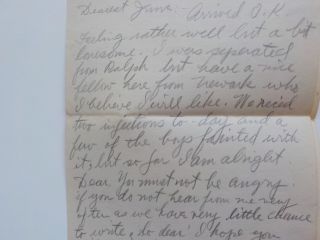 Dearest Jane - Arrived O.K
Feeling rather well but a bit
lonesome. I was seperated
from Ralph but have a nice
fellow here from Newark who
I believe I will like. We recied
two injections to-day and a
few of the boys fainted with
it, but so far I am alright
Dear You must not be angry
if you do not hear from me very
often as we have very little chance
to write, so dear I hope you